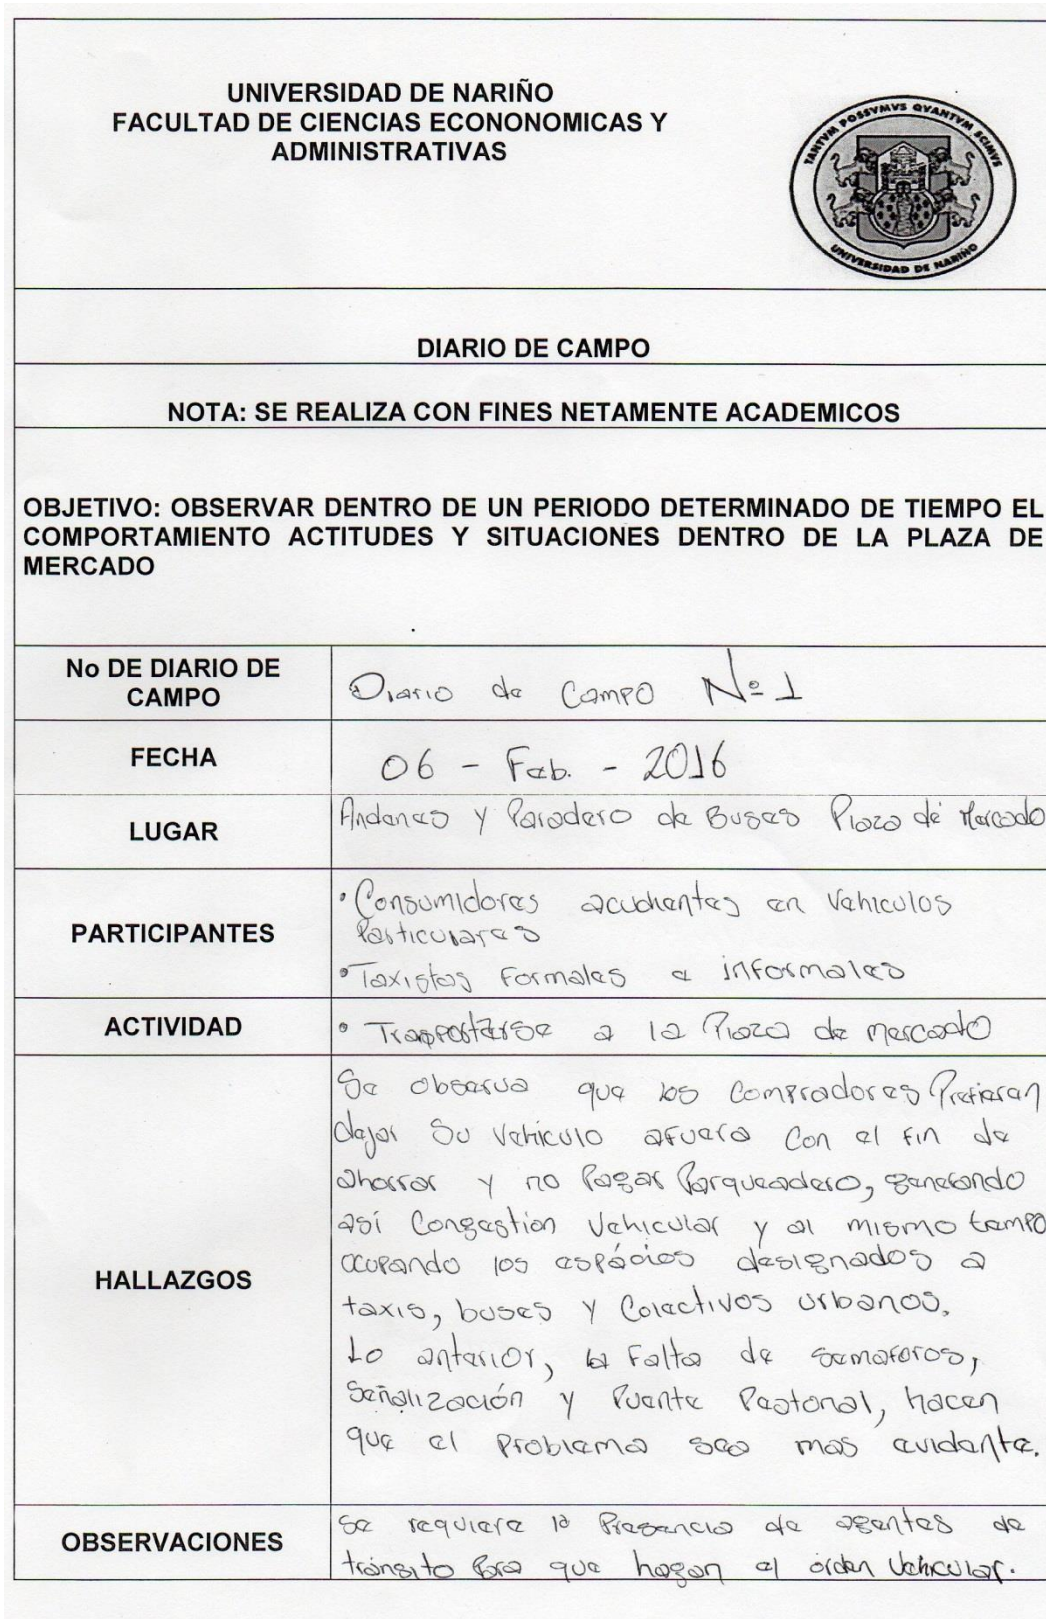 UNIVERSIDAD DE NARIÑO
FACULTAD DE CIENCIAS ECONONOMICAS Y
ADMINISTRATIVAS
TANTVM POSSVMVS QVANTVM SCIMVS
UNIVERSIDAD DE NARIÑO
DIARIO DE CAMPO
NOTA: SE REALIZA CON FINES NETAMENTE ACADEMICOS
OBJETIVO: OBSERVAR DENTRO DE UN PERIODO DETERMINADO DE TIEMPO EL
COMPORTAMIENTO ACTITUDES Y SITUACIONES DENTRO DE LA PLAZA DE
MERCADO
No DE DIARIO DE
CAMPO
Diario de Campo Nº 1
FECHA
06 - Feb. - 2016
LUGAR
Andenes y Paradero de Buses Plaza de Mercado
PARTICIPANTES
• Consumidores acudientes en Vehiculos
Particulares
• Taxistas Formales e informales
ACTIVIDAD
• Trasportarse a la Plaza de mercado
HALLAZGOS
Se observa que los Compradores Prefieren
dejar Su Vehiculo afuera Con el fin de
ahorrar y no Pagar Parqueadero, generando
así Congestión Vehicular y al mismo tempo
ocupando los espácios designados a
taxis, buses y Colectivos urbanos.
Lo anterior, la Falta de semaforos,
Señalización y Puente Peatonal, hacen
que el Problema sea mas evidente.
OBSERVACIONES
Se requiere la Presencia de agentes de
tránsito Para que hagan el órden Vehicular.